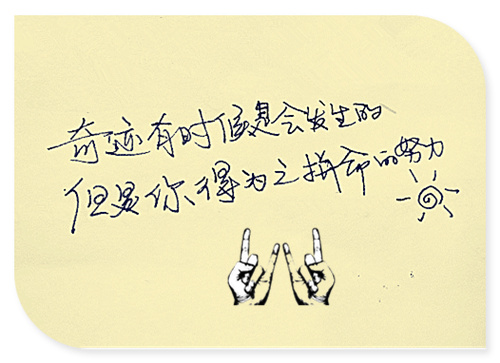 奇迹有时候是会发生的
但是你得为之拼命的努力